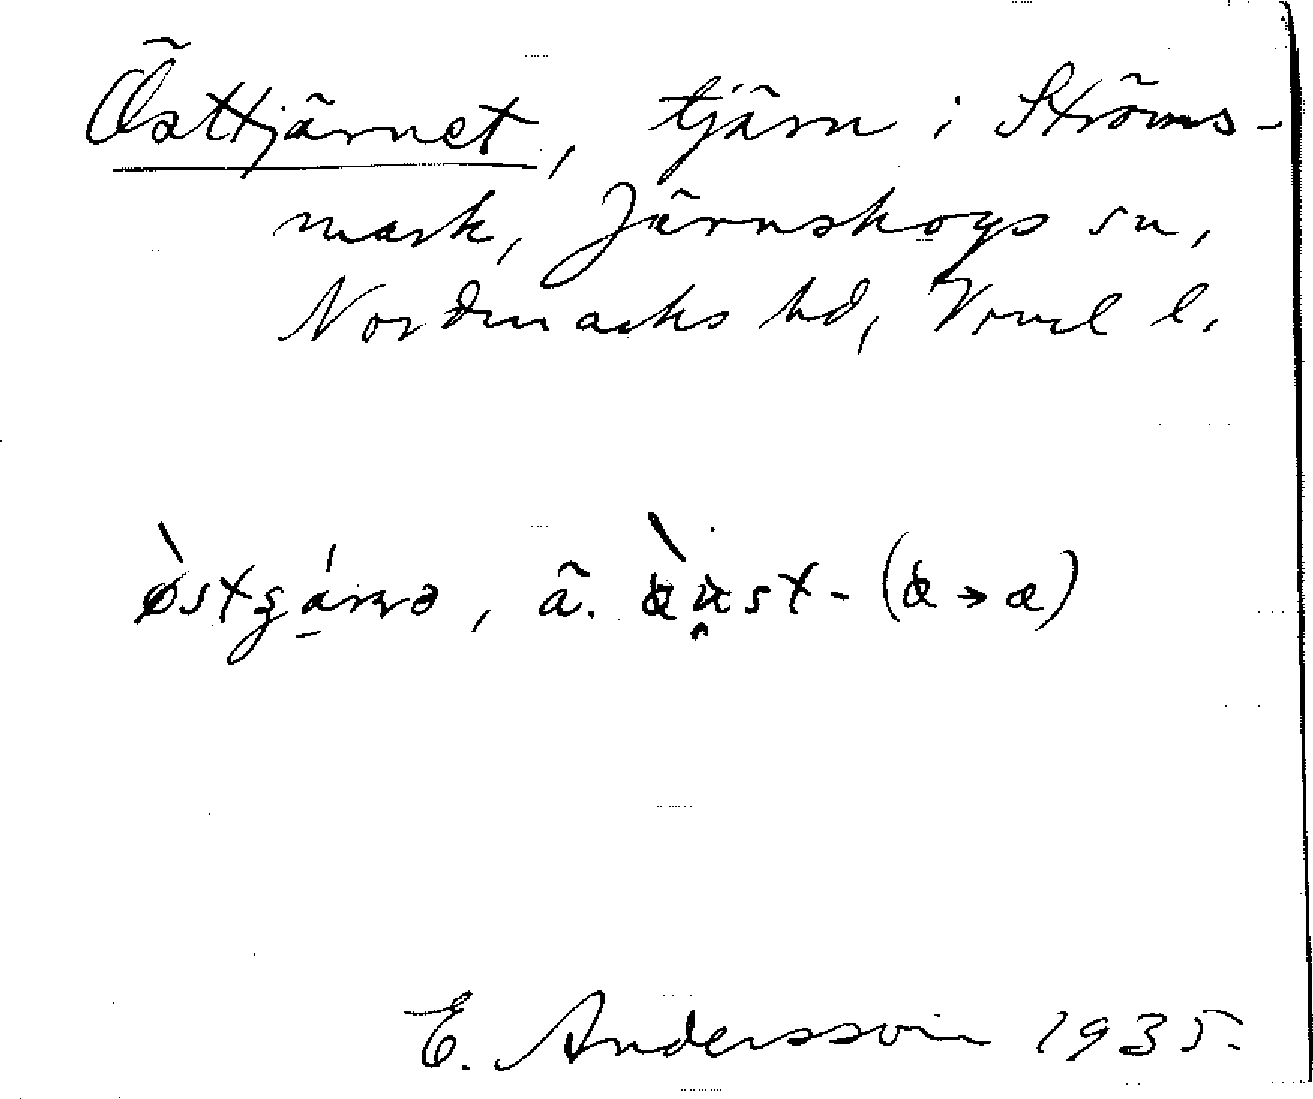 Östtjärnet, tjärn i Ströms-
mark, Järnskogs sn,
Nordmarks hd, Vrml l.
ä.
E. Andersson 1935.